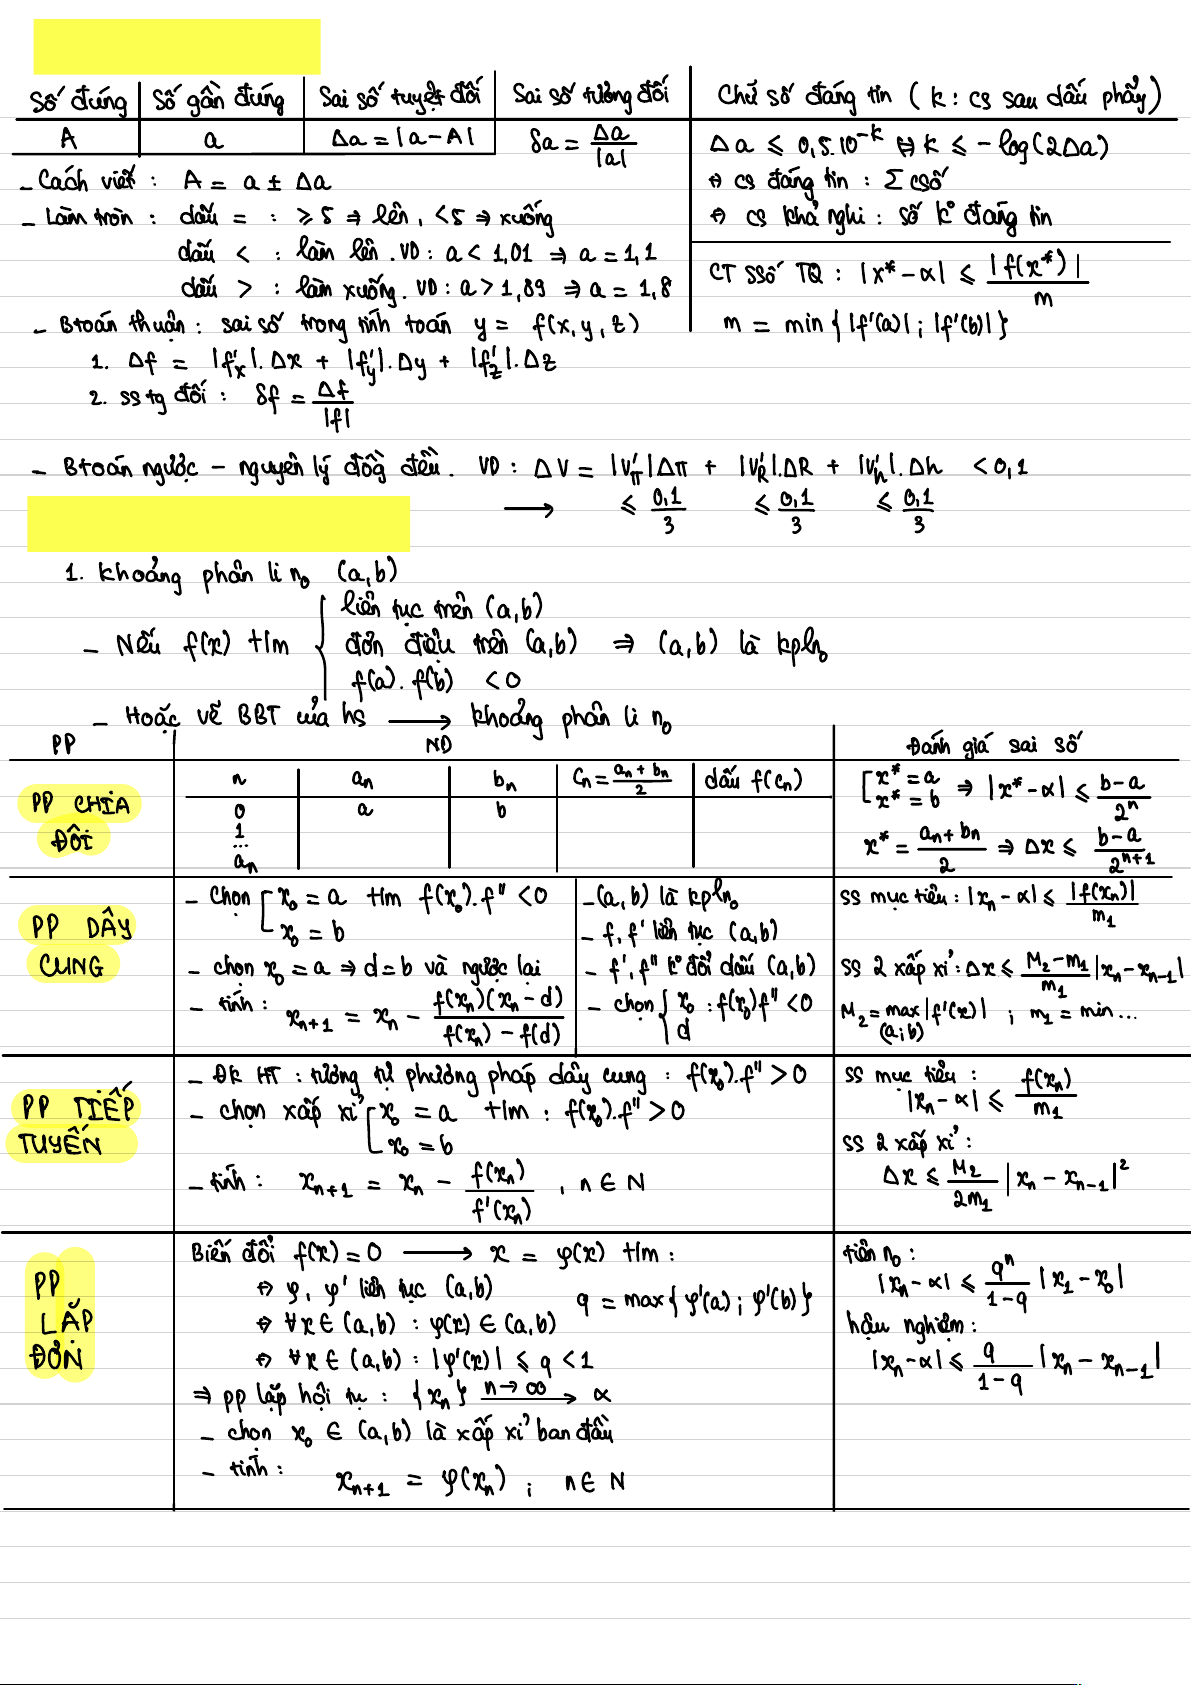 Số đúng | Số gần đúng | Sai số tuyệt đối | Sai số tương đối | Chữ số đáng tin ( k : cs sau dấu phẩy )
A | a | Δa = |a - A| | δa = Δa/|a| | Δa ≤ 0,5.10^-k ⇔ k ≤ - log(2Δa)
- Cách viết : A = a ± Δa
⇔ cs đáng tin : Σ csố
- Làm tròn : dấu = : ≥ 5 ⇒ lên, < 5 ⇒ xuống
⇔ cs khả nghi : số k° đáng tin
dấu < : làm lên . VD : a < 1,01 ⇒ a = 1,1
dấu > : làm xuống. VD : a > 1,89 ⇒ a = 1,8
CT SSố TQ : |x* - α| ≤ |f(x*)|/m
m = min{ |f'(a)| ; |f'(b)| }
- Btoán thuận : sai số trong tính toán y = f(x, y, z)
1. Δf = |f'x|. Δx + |f'y|. Δy + |f'z|. Δz
2. ss tg đối : δf = Δf/|f|
- Btoán ngược - nguyên lý đồg đều. VD : ΔV = |V'π|Δπ + |V'R|.ΔR + |V'h|. Δh < 0,1
⟶ ≤ 0,1/3 ≤ 0,1/3 ≤ 0,1/3
1. Khoảng phân li n₀ (a,b)
- Nếu f(x) t/m { liên tục trên (a,b)
đơn điệu trên (a,b) ⇒ (a,b) là kpln₀
f(a). f(b) < 0
- Hoặc vẽ BBT của hs ⟶ khoảng phân li n₀
PP | ND | Đánh giá sai số
PP CHIA ĐÔI
n | an | bn | Cn = (an + bn)/2 | dấu f(cn)
0 | a | b
1
...
an
[ x* = a
x* = b ⇒ |x* - α| ≤ (b - a)/2^n
x* = (an + bn)/2 ⇒ Δx ≤ (b - a)/2^(n+1)
PP DÂY CUNG
- Chọn [ x₀ = a t/m f(x₀). f'' < 0
x₀ = b
- chọn x₀ = a ⇒ d = b và ngược lại
- tính : xn+1 = xn - f(xn)(xn - d)/(f(xn) - f(d))
- (a, b) là kpln₀
- f, f' liên tục (a,b)
- f', f'' k° đổi dấu (a,b)
- chọn { x₀ : f(x₀)f'' < 0
d
SS mục tiêu : |xn - α| ≤ |f(xn)|/m1
SS 2 xấp xỉ : Δx ≤ (M2 - m1)/m1 |xn - xn-1|
M2 = max |f'(x)| ; m1 = min ...
(a;b)
PP TIẾP TUYẾN
- ĐK HT : tương tự phương pháp dây cung : f(x₀). f'' > 0
- chọn xấp xỉ [ x₀ = a t/m : f(x₀). f'' > 0
x₀ = b
- tính : xn+1 = xn - f(xn)/f'(xn) , n ∈ N
SS mục tiêu :
|xn - α| ≤ f(xn)/m1
SS 2 xấp xỉ :
Δx ≤ M2/2m1 |xn - xn-1|²
PP LẶP ĐƠN
Biến đổi f(x) = 0 ⟶ x = φ(x) t/m :
⇔ φ, φ' liên tục (a,b)
q = max{ φ'(a) ; φ'(b) }
⇔ ∀x ∈ (a,b) : φ(x) ∈ (a,b)
⇔ ∀x ∈ (a,b) : |φ'(x)| ≤ q < 1
⇒ pp lặp hội tụ : {xn} n→∞ ⟶ α
- chọn x₀ ∈ (a,b) là xấp xỉ ban đầu
- tính : xn+1 = φ(xn) ; n ∈ N
tiên n₀ :
|xn - α| ≤ q^n/(1 - q) |x1 - x₀|
hậu nghiệm :
|xn - α| ≤ q/(1 - q) |xn - xn-1|